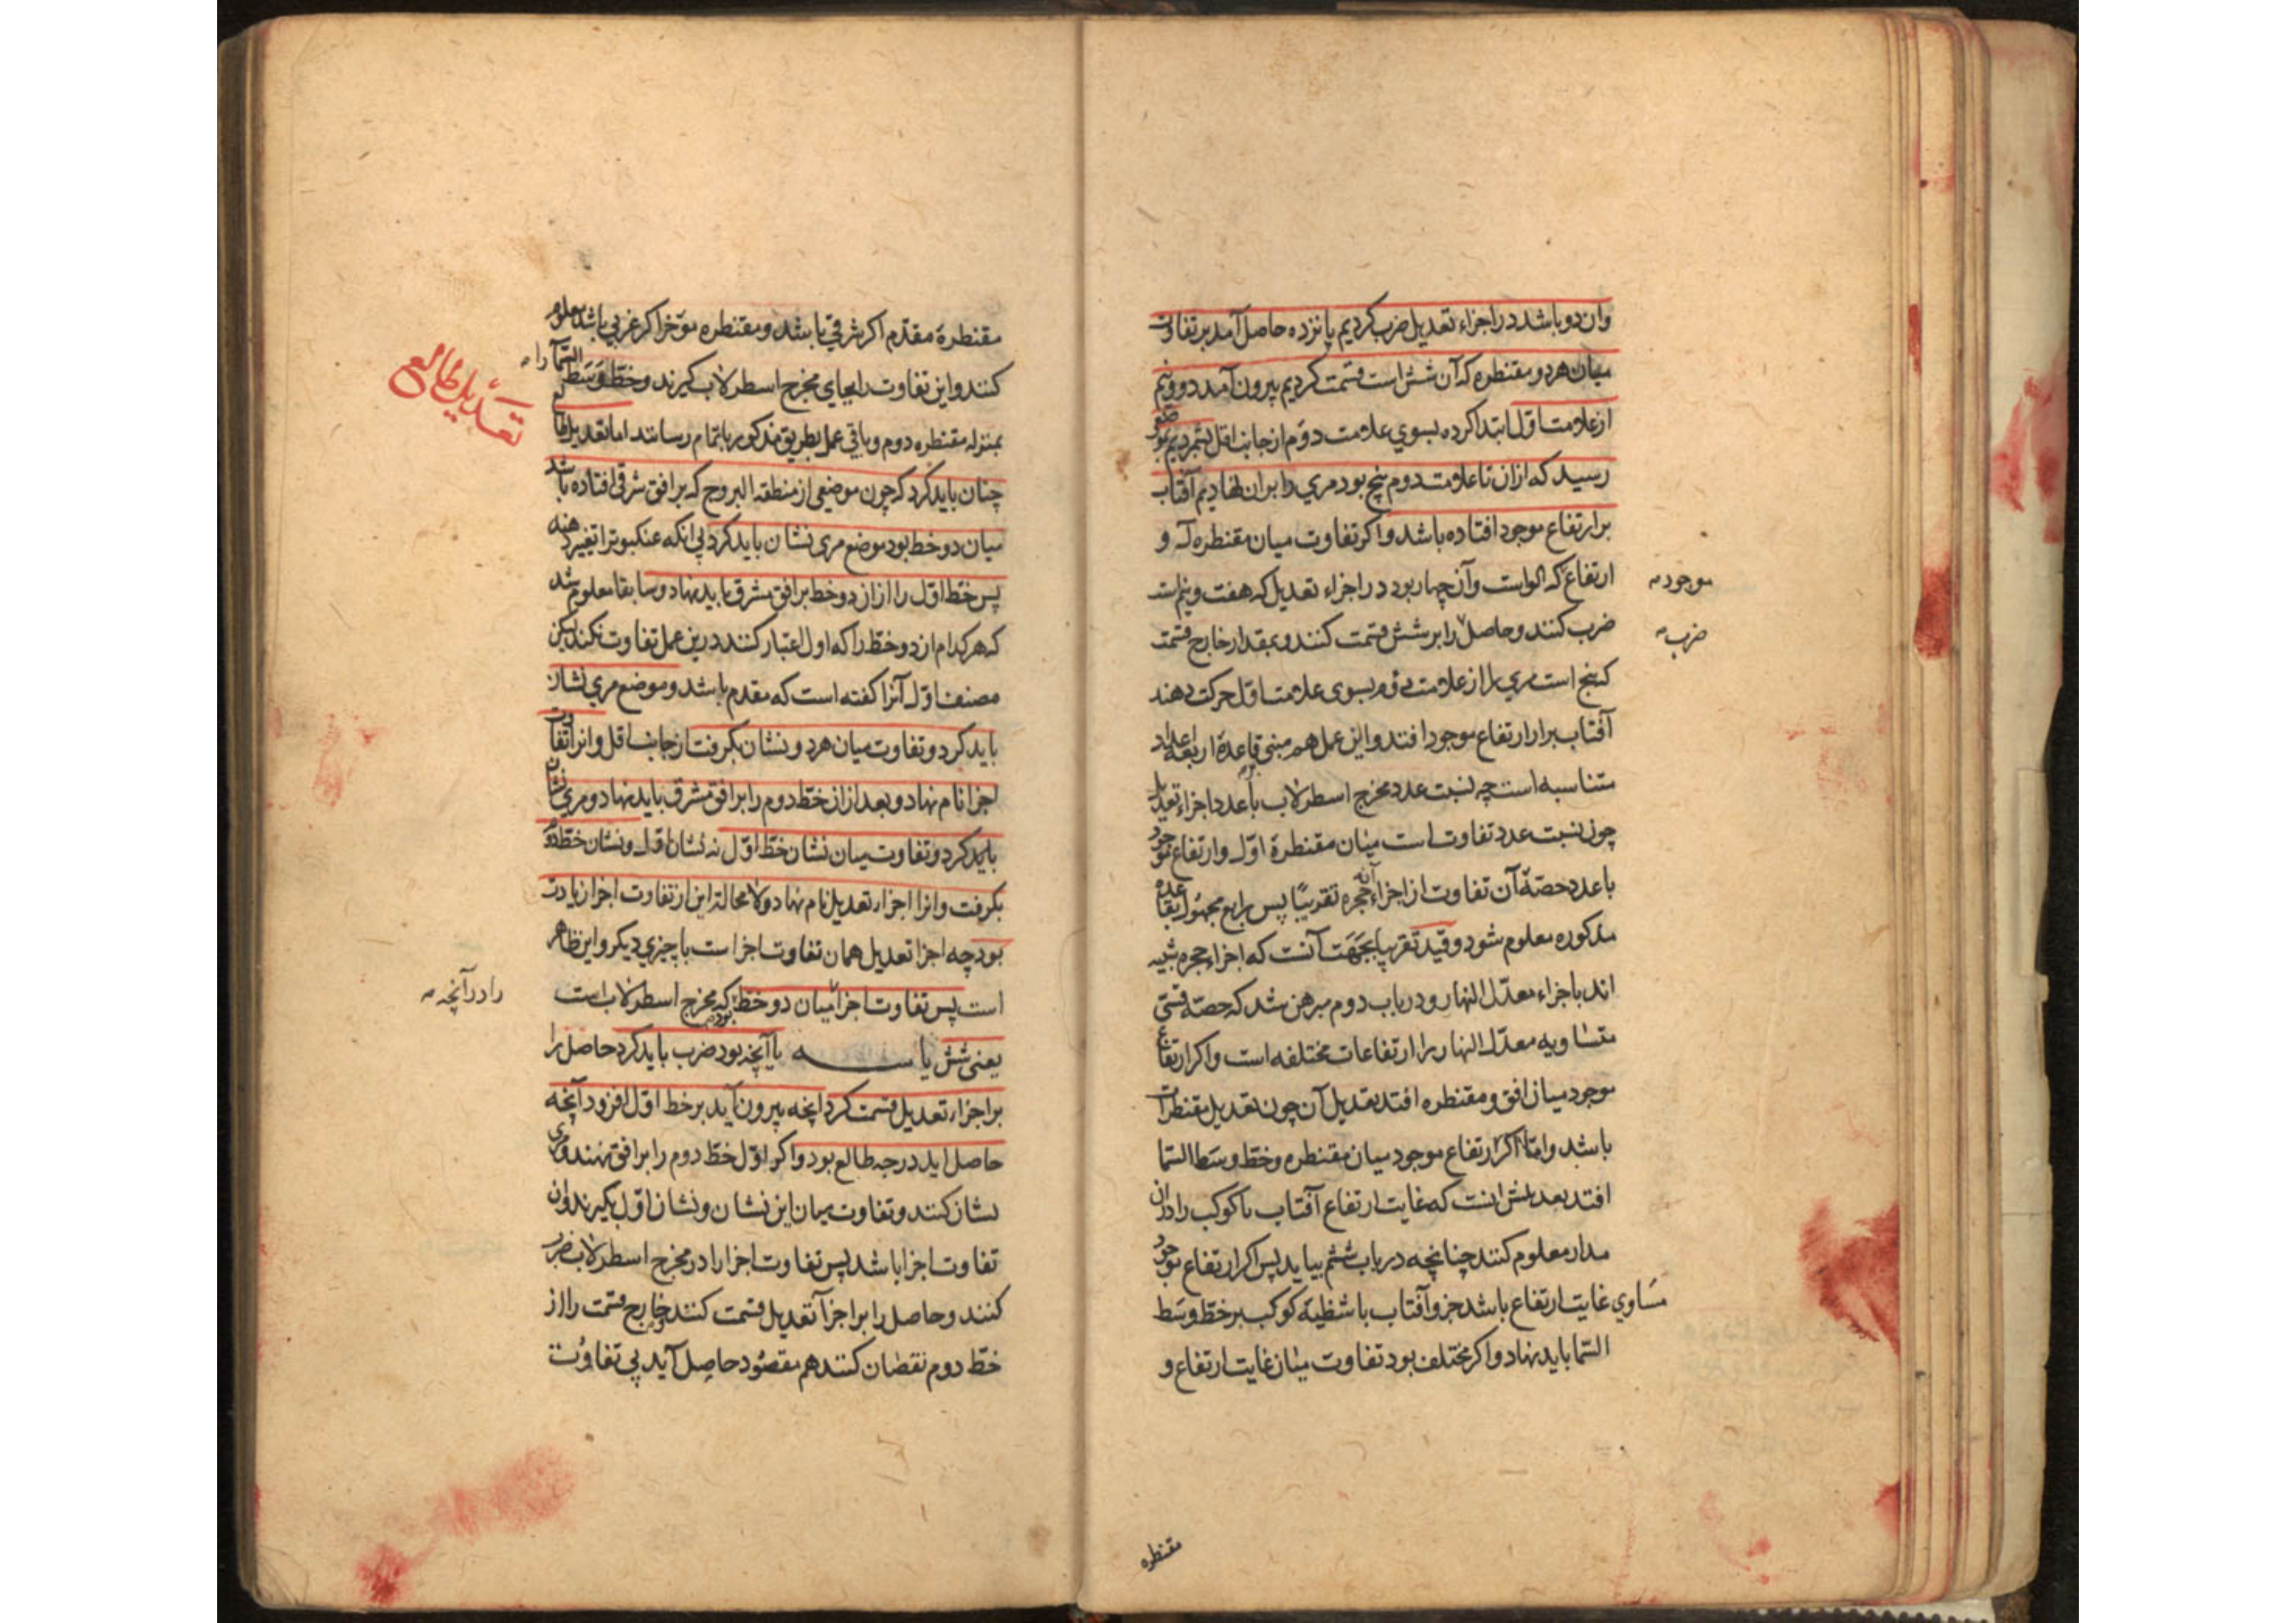 وان دو باشد در اجزاء تعدیل ضرب کردیم پانزده حاصل آمد بر تفاوت
میان هر دو مقنطره که آن شش است قسمت کردیم بیرون آمد دو و نیم
از علامت اول ابتدا کرده بسوی علامت دوم از جانب اقل بشمردیم بموضعی
رسید که ازان تا علامت دوم پنج بود مری را بران نهادیم آفتاب
بر ارتفاع موجود افتاده باشد و اکر تفاوت میان مقنطره لـه و
ارتفاع که الواست وآن چهار بود در اجزاء تعدیل که هفت و نیم است
موجود
ضرب کنند و حاصل را بر شش قسمت کنند و بمقدار خارج قسمت
ضرب
که پنج است مری را از علامت دوم بسوی علامت اول حرکت دهند
آفتاب برار ارتفاع موجود افتد واین عمل هم مبنی قاعدهٔ اربعه اعداد
متناسبه است چه نسبت عدد مخرج اسطرلاب با عدد اجزاء تعدیل
چون نسبت عدد تفاوت است میان مقنطرهٔ اول و ارتفاع موجود
با عدد حصهٔ آن تفاوت از اجزاء حجره تقریباً پس رابع مجهول بقاعده
مذکوره معلوم شود و قید تقریبا بجهت آنست که اجزاء حجره شبیه
اند باجزاء معدل النهار و در باب دوم مبرهن شد که حصهٔ قسی
متساویه معدل النهار را ارتفاعات مختلفه است واکر ارتفاع
موجود میان افق و مقنطره افتد تعدیل آن چون تعدیل مقنطرات
باشد و امّا اکر ارتفاع موجود میان مقنطره وخط وسط السما
افتد تعدیلش انست که غایت ارتفاع آفتاب یا کوکب را دران
مدار معلوم کنند چنانچه در باب ششم بیاید پس اکر ارتفاع موجود
مساوی غایت ارتفاع باشد جزو آفتاب یا شظیهٔ کوکب بر خط وسط
السما باید نهاد و اکر مختلف بود تفاوت میان غایت ارتفاع و
مقنطره
مقنطرهٔ مقدم اکر شرقی باشد و مقنطره موخر اکر غربی باشد معلوم
کنند واین تفاوت را بجای مخرج اسطرلاب کیرند و خط وسط
السما را
بمنزله مقنطره دوم و باقی عمل بطریق مذکور باتمام رسانند اما تعدیل طالع
تعدیل طالع
چنان باید کرد که چون موضعی از منطقه البروج که بر افق شرقی افتاده باشد
میان دو خط بود موضع مری نشان باید کرد پی انکه عنکبوت را تغییر دهند
پس خط اول را ازان دو خط بر افق مشرق باید نهاد و سابقا معلوم شد
که هر کدام ازدو خط را که اول اعتبار کنند درین عمل تفاوت نکند لیکن
مصنف اول آنرا کفته است که مقدم باشد و موضع مری نشان
باید کرد و تفاوت میان هر دو نشان بکرفت از جانب اقل وانرا تفاوت
اجزا نام نهاد و بعد ازان خط دوم را بر افق مشرق باید نهاد و مری نشان
باید کرد و تفاوت میان نشان خط اول نه نشان اول و نشان خط دوم
بکرفت وانرا اجزاء تعدیل نام نهاد و لا محاله این از تفاوت اجزا زیادت
بود چه اجزا تعدیل همان تفاوت اجزا است با چیزی دیکر و این ظاهر
است پس تفاوت اجزا میان دو خط که مخرج اسطرلاب است
را در آنچه
یعنی شش یا سه یا آنچه بود ضرب باید کرد حاصل را
بر اجزاء تعدیل قسمت کرد انچه بیرون آید بر خط اول افزود آنچه
حاصل اید درجه طالع بود و اکر اول خط دوم را بر افق نهند و مری
نشان کنند و تفاوت میان این نشان و نشان اول بکیرند وان
تفاوت اجزا باشد پس تفاوت اجزا را در مخرج اسطرلاب ضرب
کنند و حاصل را بر اجزا تعدیل قسمت کنند و خارج قسمت را از
خط دوم نقصان کنند هم مقصود حاصل آید بی تفاوت